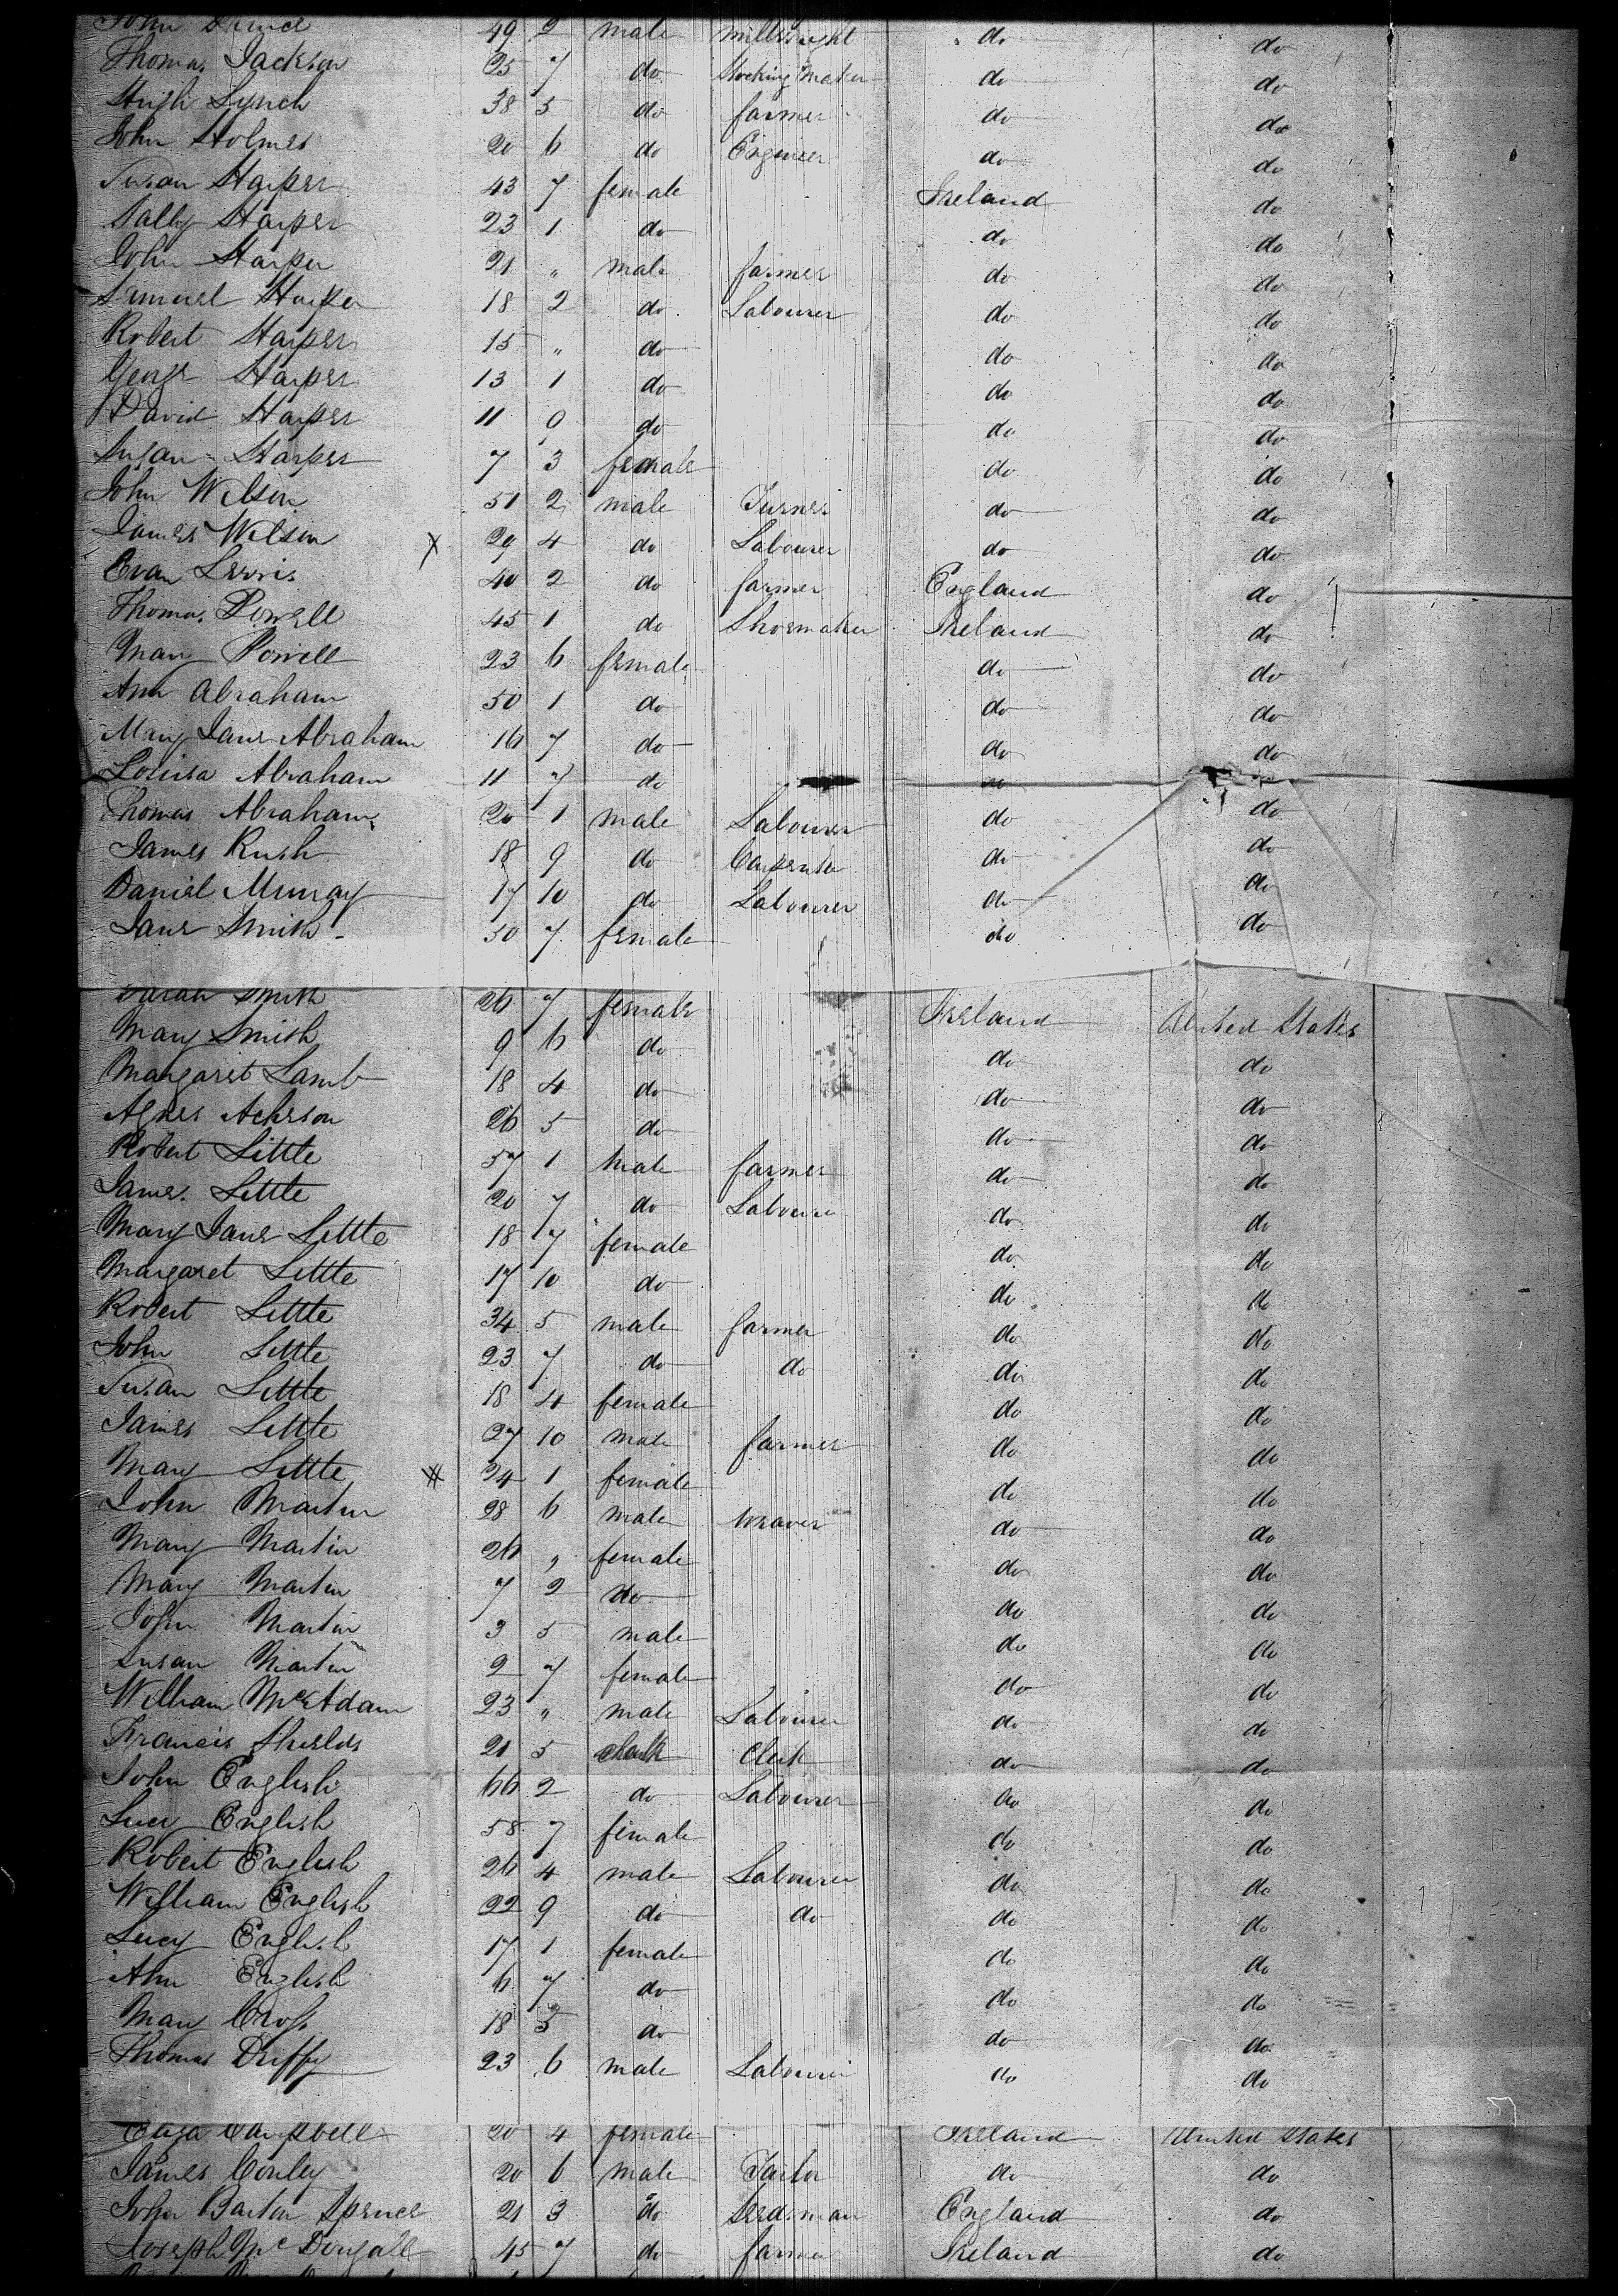 John 49 2 male millwright do do
Thomas Jackson 25 7 do Stocking Maker do do
Hugh Lynch 38 5 do farmer do do
John Holmes 20 6 do Engineer do do
Susan Harper 43 7 female Ireland do
Sally Harper 23 1 do do do
John Harper 21 " male farmer do do
Samuel Harper 18 2 do Labourer do do
Robert Harper 15 " do do do
George Harper 13 1 do do do
David Harper 11 0 do do do
Susan Harper 7 3 female do do
John Wilson 51 2 male Turner do do
James Wilson X 29 4 do Labourer do do
Evan Lewis 40 2 do farmer England do
Thomas Powell 45 1 do Shoemaker Ireland do
Mary Powell 23 6 female do do
Ann Abraham 50 1 do do do
Mary Jane Abraham 16 7 do do do
Louisa Abraham 11 7 do do do
Thomas Abraham 20 1 male Labourer do do
James Rush 18 9 do Carpenter do do
Daniel Murray 17 10 do Labourer do do
Jane Smith 30 7 female do do
Sarah Smith 26 7 female Ireland United States
Mary Smith 9 6 do do do
Margaret Lamb 18 4 do do do
Agnes Acheson 26 5 do do do
Robert Little 57 1 male farmer do do
James Little 20 7 do Labourer do do
Mary Jane Little 18 7 female do do
Margaret Little 17 10 do do do
Robert Little 34 5 male farmer do do
John Little 23 7 do do do do
Susan Little 18 4 female do do
James Little 27 10 male farmer do do
Mary Little 24 1 female do do
John Martin 28 6 male weaver do do
Mary Martin 26 " female do do
Mary Martin 7 2 do do do
John Martin 3 5 male do do
Susan Martin 2 7 female do do
William McAdam 23 " male Labourer do do
Francis Shields 21 5 Clerk do do
John English 66 2 do Labourer do do
Lucy English 58 7 female do do
Robert English 26 4 male Labourer do do
William English 22 9 do do do do
Lucy English 17 1 female do do
Ann English 6 7 do do do
Mary Cross 18 5 do do do
Thomas Duffy 23 6 male Labourer do do
Eliza Campbell 20 4 female Ireland United States
James Conley 20 6 male Tailor do do
John Barton Spencer 21 3 do Seedsman England do
Joseph McDougall 45 7 do farmer Ireland do